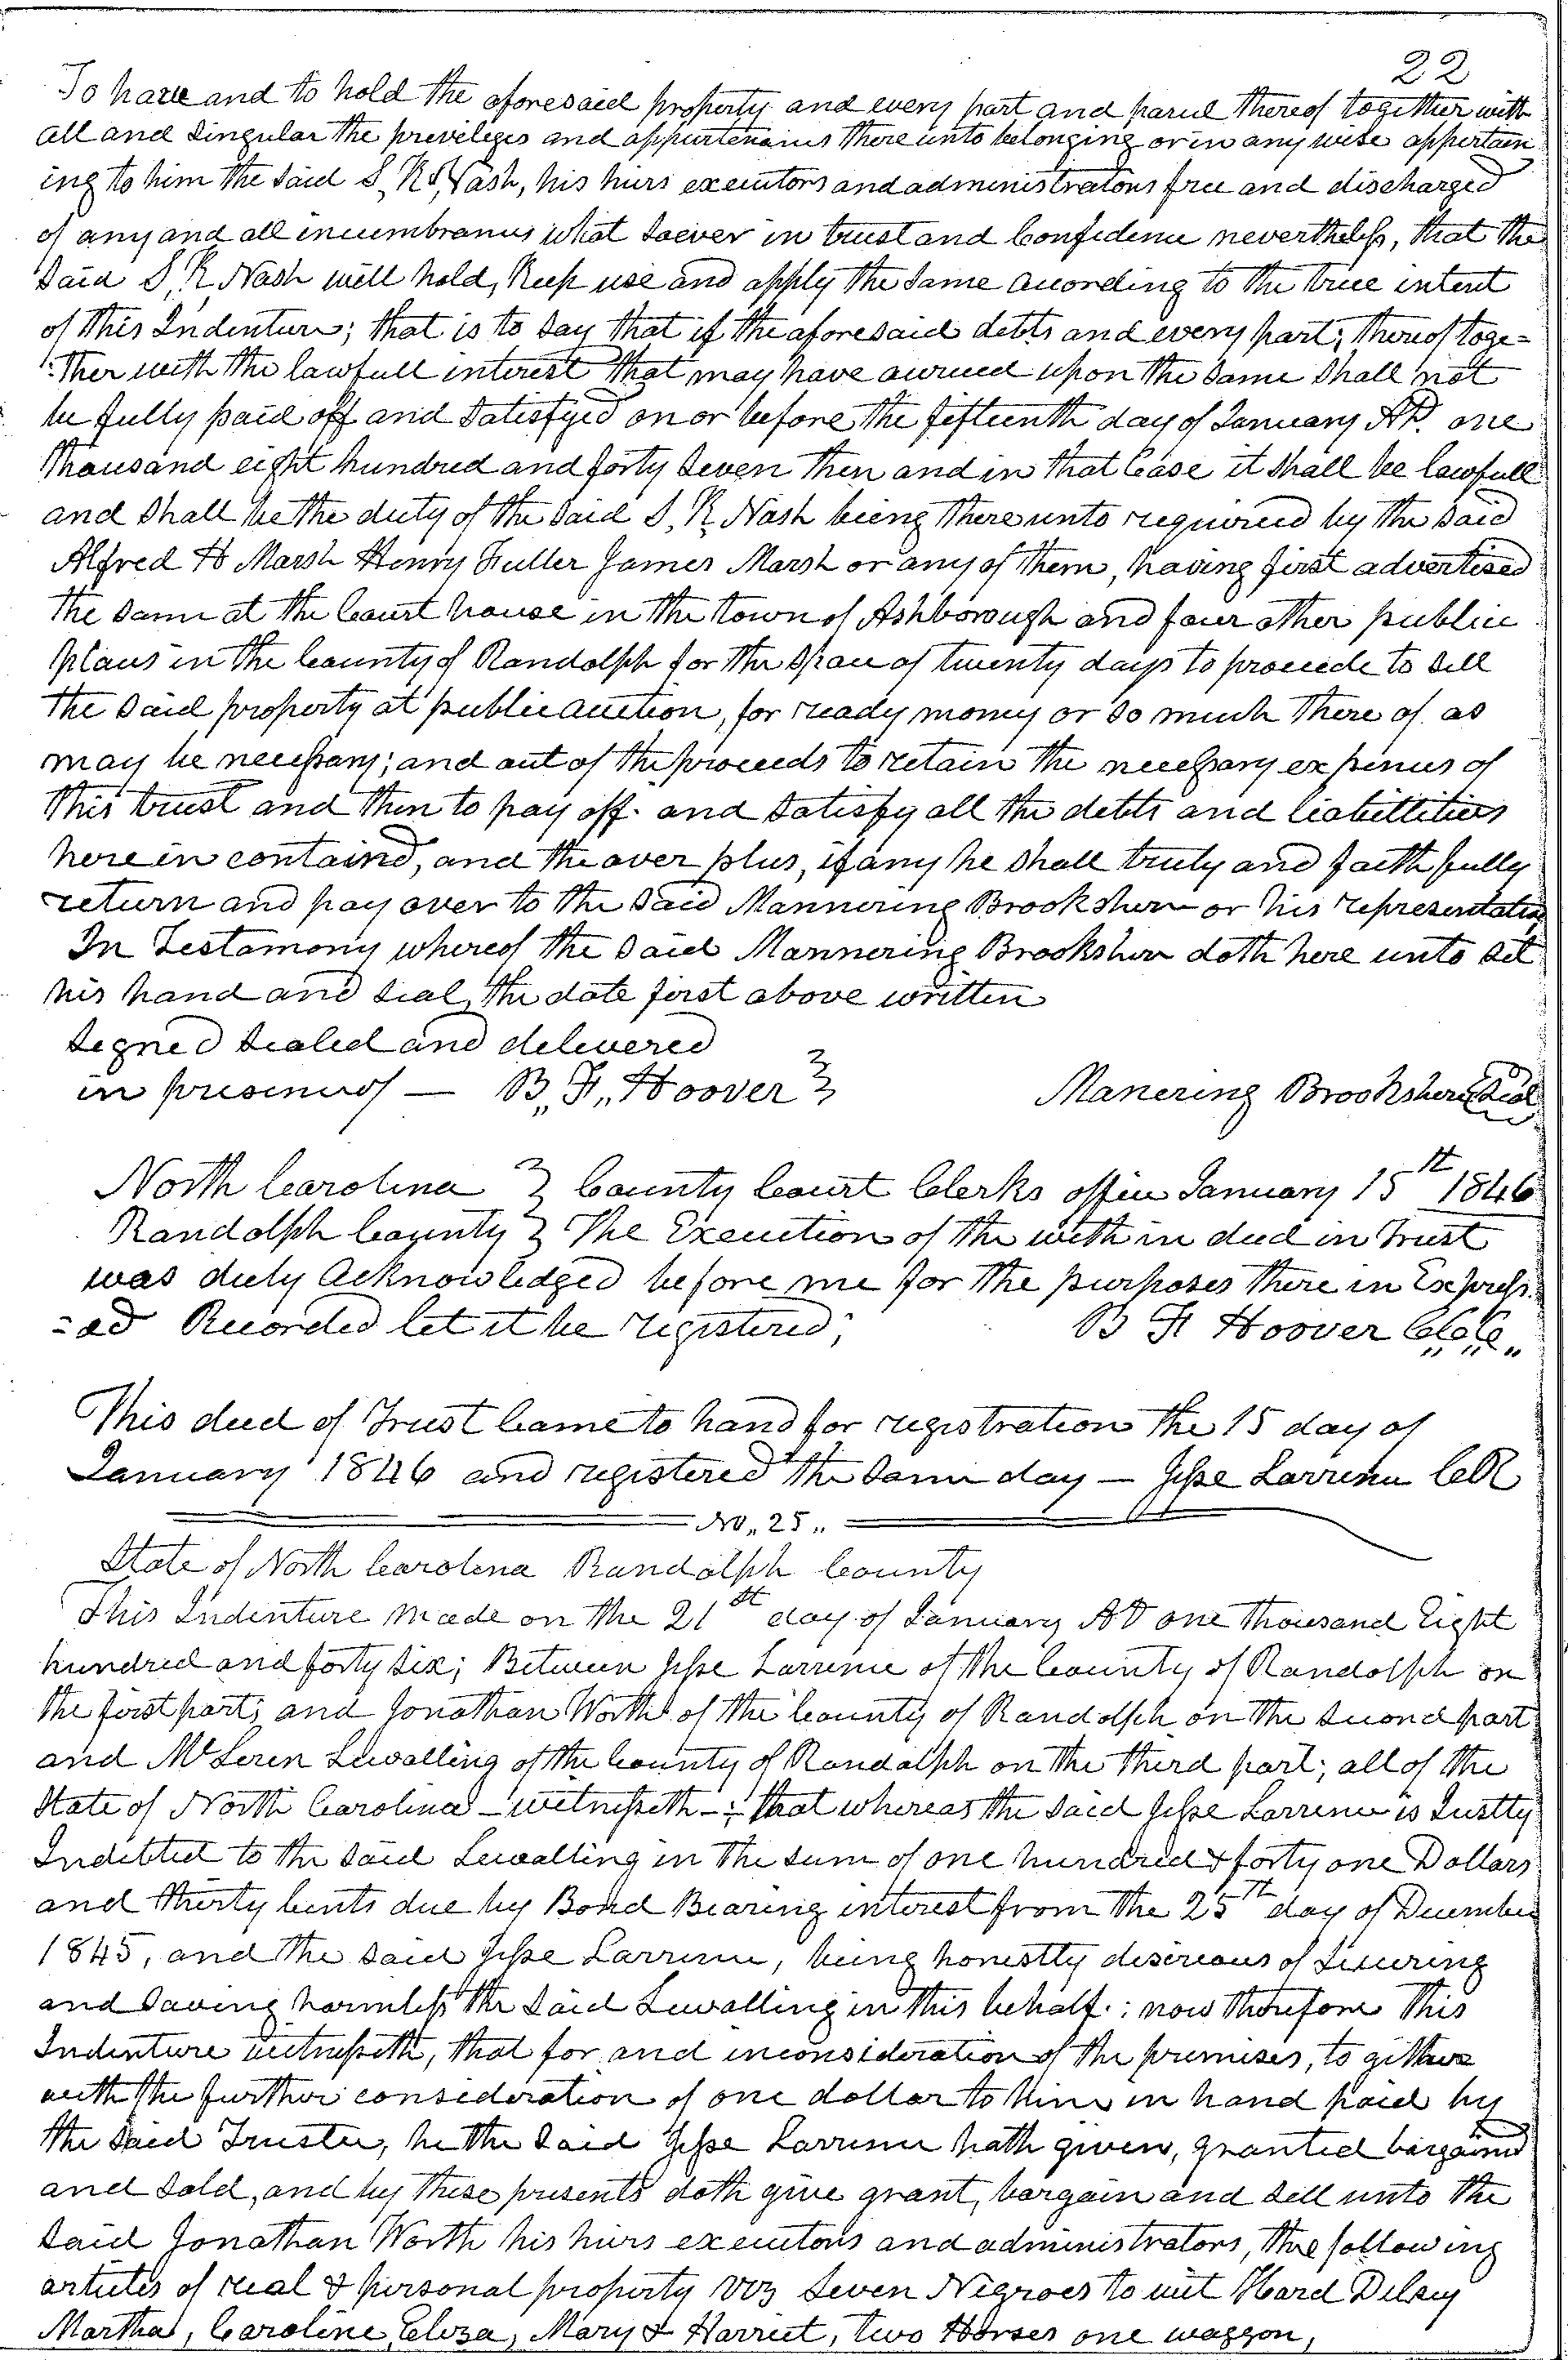 22
To have and to hold the aforesaid property and every part and parcel thereof together with
all and singular the previleges and appurtenances there unto belonging or in any wise appertain
ing to him the said S. R. Nash, his heirs executors and administrators free and discharged
of any and all incumbrances what soever in trust and confidence nevertheless, that the
said S. R. Nash will hold, keep use and apply the same according to the true intent
of this Indenture; that is to say that if the aforesaid debts and every part, thereof toge=
:ther with the lawfull interest that may have accrued upon the same shall not
be fully paid off and satisfyed on or before the fifteenth day of January AD. one
thousand eight hundred and forty seven then and in that case it shall be lawfull
and shall be the duty of the said S. R. Nash being there unto required by the said
Alfred H Marsh Henry Fuller James Marsh or any of them, having first advertised
the same at the court house in the town of Ashborough and four other public
places in the county of Randolph for the space of twenty days to proceede to sell
the said property at public auction, for ready money or so much there of as
may be necessary; and out of the proceeds to retain the necessary expences of
this trust and then to pay off. and satisfy all the debts and liabillities
here in containd, and the over plus, if any he shall truly and faith fully
return and pay over to the said Mannering Brookshere or his representative
In Testamony whereof the said Mannering Brookshere doth here unto set
his hand and seal, the date first above written
Signed sealed and delivered
in presence of — B,, F,, Hoover }
Manering Brookshere Seal
North Carolina } County Court Clerks office January 15th 1846
Randolph County } The Execution of the with in deed in Trust
was duly Acknowledged before me for the purposes there in Express
=ed Recorded let it be registered;
B F Hoover C,, C,, C,,
This deed of Trust came to hand for registration the 15 day of
January 1846 and registered the same day — Jesse Larrence CPR
No,, 25,,
State of North Carolina Randolph County
This Indenture made on the 21st day of January AD one thousand Eight
hundred and forty six; Between Jesse Larrence of the County of Randolph on
the first part; and Jonathan Worth of the County of Randolph on the second part
and McSeren Lewalling of the County of Randolph on the third part; all of the
State of North Carolina - witnesseth -: that whereas the said Jesse Larrence is Justly
Indebted to the said Lewalling in the sum of one hundred & forty one Dollars
and thirty cents due by Bond Bearing interest from the 25th day of December
1845, and the said Jesse Larrence, being honestly disereous of securing
and saving harmless the said Lewalling in this behalf.: now therefore this
Indenture witnesseth, that for and inconsideration of the premises, to gither
with the further consideration of one dollar to him in hand paid by
the said Trustee, he the said Jesse Larrence hath given, granted bargained
and sold, and by these presents doth give grant, bargain and sell unto the
said Jonathan Worth his heirs executors and administrators, the following
articles of real & personal property viz seven Negroes to wit Hard Delsey
Martha, Caroline, Eliza, Mary & Harriet, two Horses one waggon,